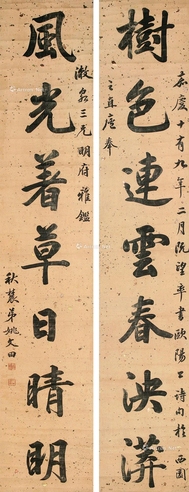 嘉慶十有九年二月既望率書歐陽公詩句於西園
樹色連雲春泱漭
之直廬奉
漱泉三兄明府雅鑑
風光著草日晴明
秋農弟姚文田